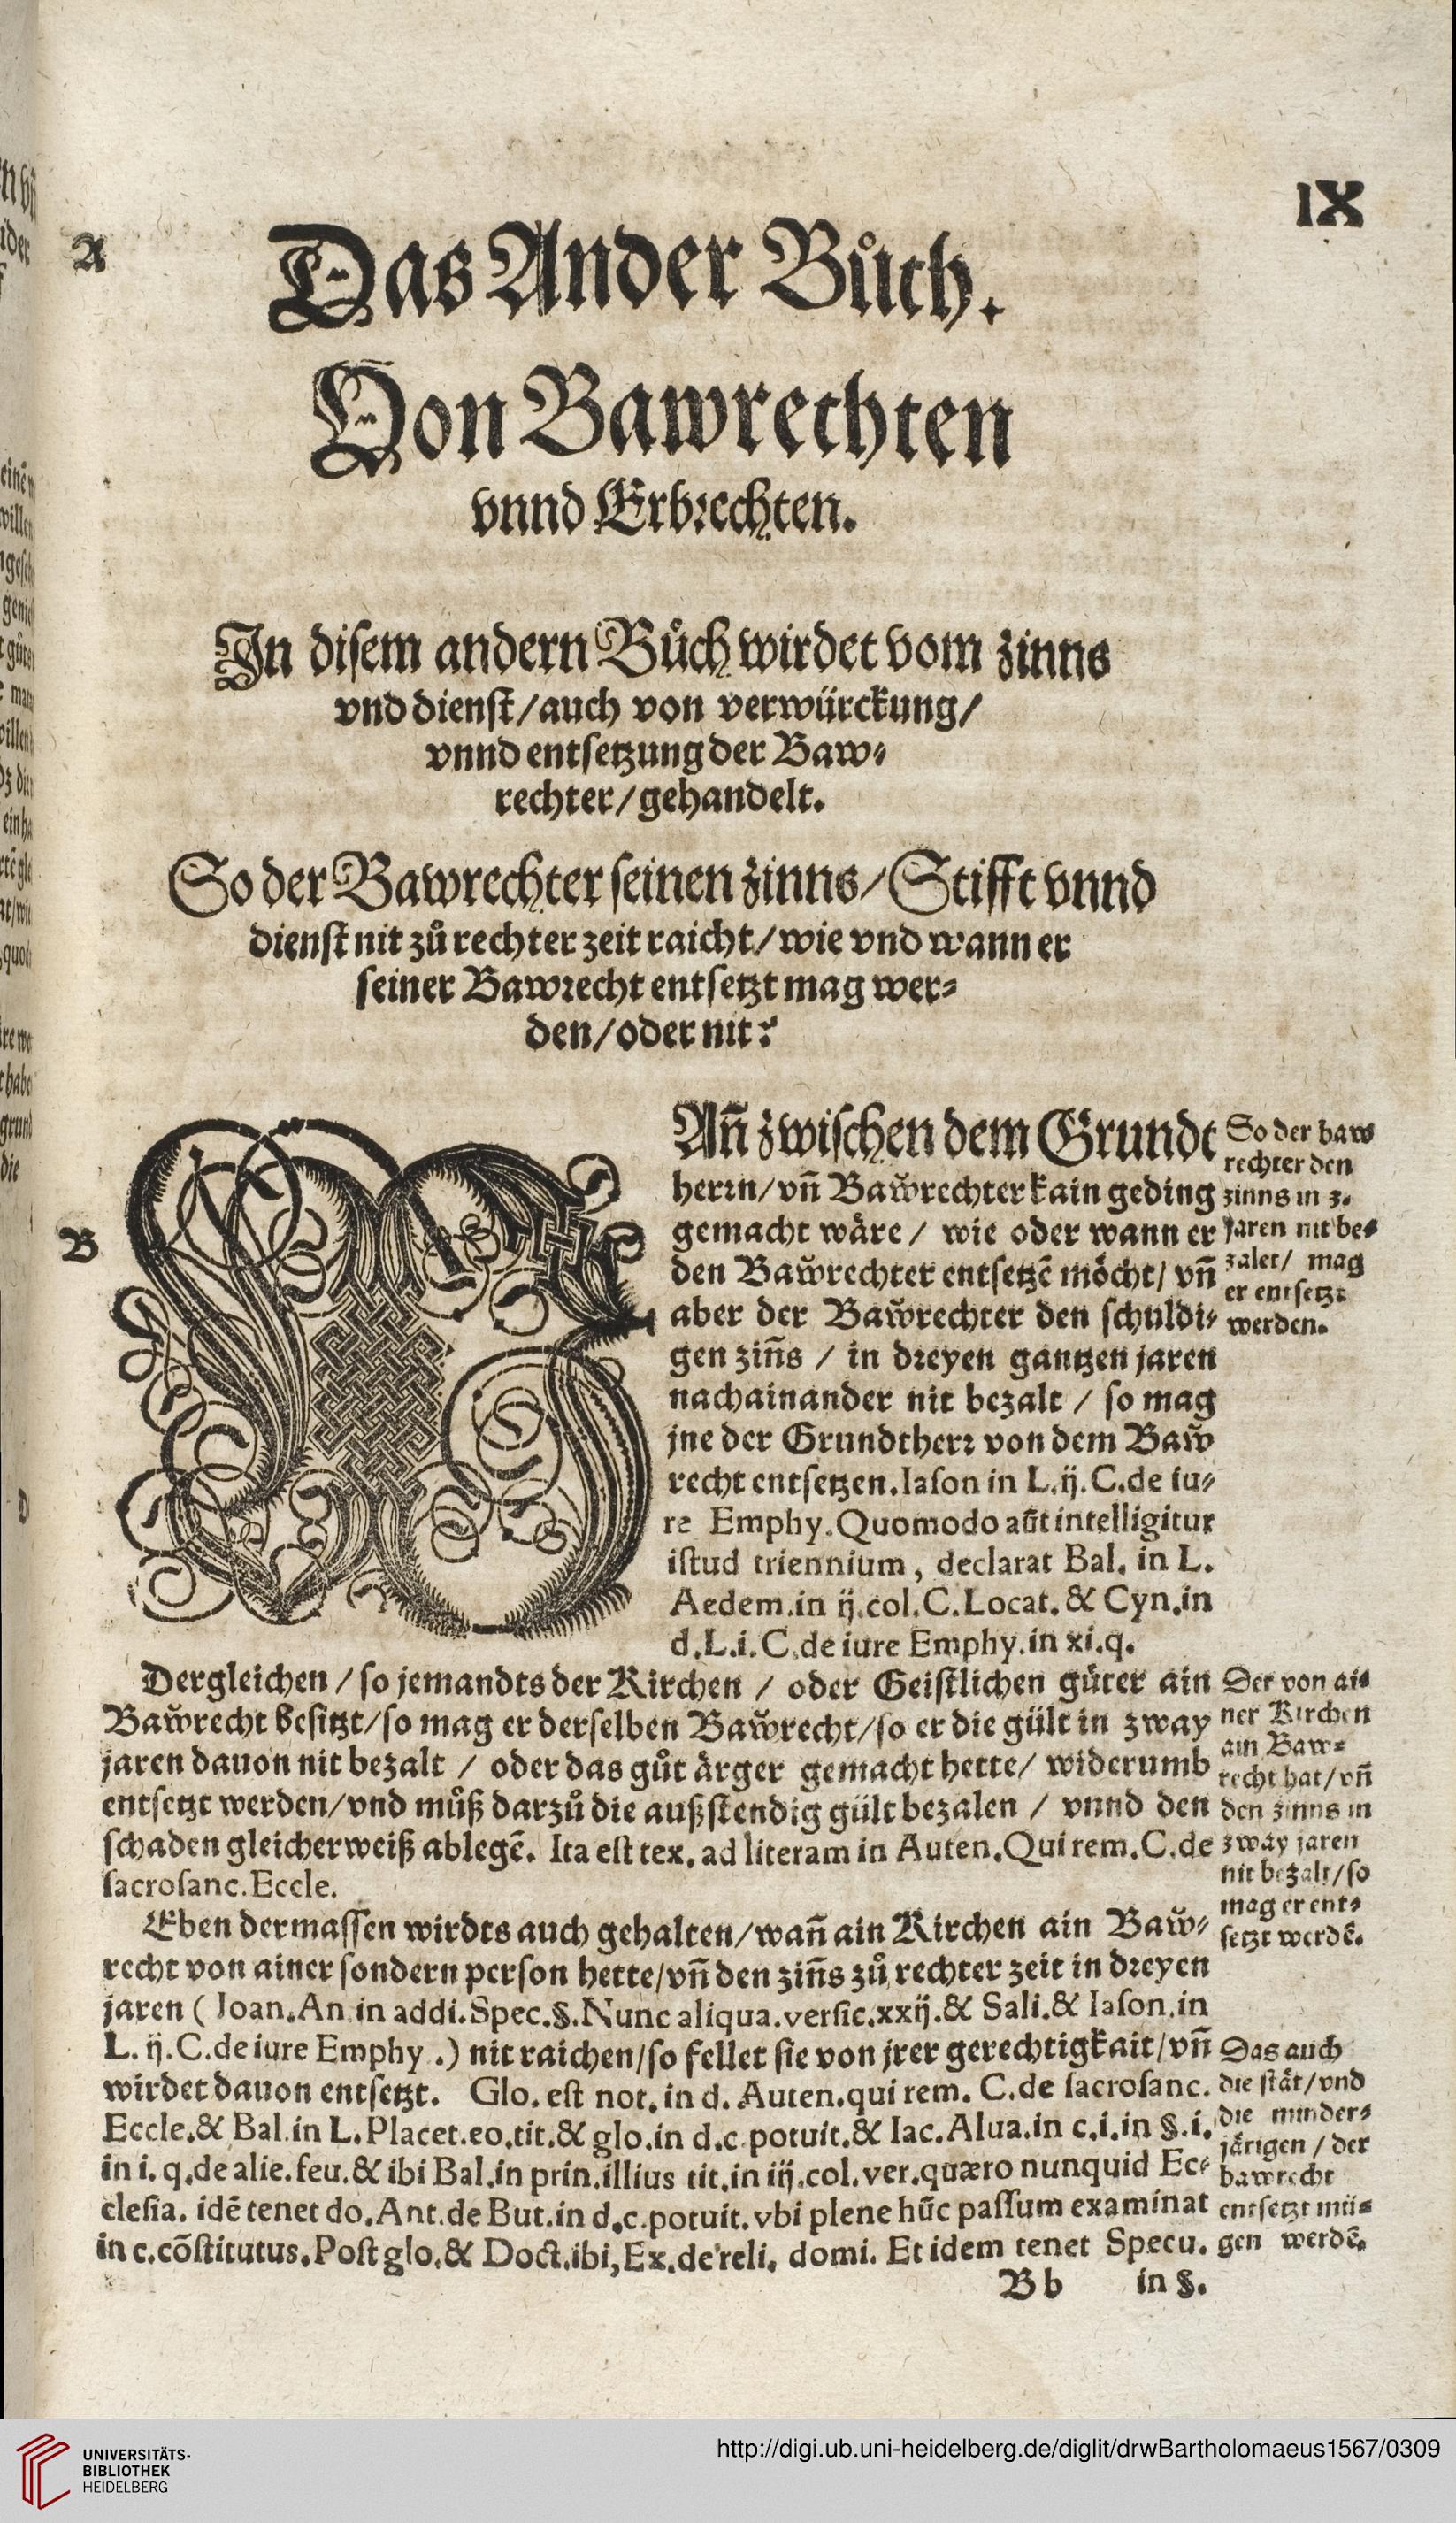 IX
A
Das Ander Bůch.
Von Bawrechten
vnnd Erbrechten.
In disem andern Bůch wirdet vom zinns
vnd dienst/auch von verwürckung/
vnnd entsetzung der Baw-
rechter/gehandelt.
So der Bawrechter seinen zinns/Stifft vnnd
dienst nit zů rechter zeit raicht/wie vnd wann er
seiner Bawrecht entsetzt mag wer-
den/oder nit?
B
WAn̄ zwischen dem Grundt
herrn/vn̄ Baw̆rechter kain geding
gemacht wäre / wie oder wann er
den Baw̆rechter entsetzē möcht/ vn̄
aber der Baw̆rechter den schuldi-
gen zin̄s / in dreyen gantzen jaren
nachainander nit bezalt / so mag
jne der Grundtherr von dem Baw̆
recht entsetzen. Iason in L.ij.C.de iu-
re Emphy.Quomodo aūt intelligitur
istud triennium, declarat Bal. in L.
Aedem.in ij.col.C.Locat. & Cyn.in
d.L.i.C.de iure Emphy.in xi.q.
So der baw
rechter den
zinns in 3.
jaren nit be-
zalet/ mag
er entsetzt
werden.
Dergleichen / so jemandts der Kirchen / oder Geistlichen güter ain
Baw̆recht besitzt/so mag er derselben Baw̆recht/so er die gült in zway
jaren dauon nit bezalt / oder das gůt ärger gemacht hette/ widerumb
entsetzt werden/vnd můß darzů die außstendig gült bezalen / vnnd den
schaden gleicherweiß ablegē. Ita est tex. ad literam in Auten.Qui rem.C.de
sacrosanc.Eccle.
Der von ai-
ner Kirchen
ain Baw-
recht hat/vn̄
den zinns in
zway jaren
nit bezalt/so
mag er ent-
setzt werdē.
Eben dermassen wirdts auch gehalten/wan̄ ain Kirchen ain Baw̆-
recht von ainer sondern person hette/vn̄ den zin̄s zů rechter zeit in dreyen
jaren ( Ioan.An in addi.Spec.§.Nunc aliqua.versic.xxij.& Sali.& Iason.in
L. ij.C.de iure Emphy .) nit raichen/so fellet sie von jrer gerechtigkait/vn̄
wirdet dauon entsetzt. Glo. est not. in d. Auten.qui rem. C.de sacrosanc.
Eccle.& Bal.in L.Placet.eo.tit.& glo.in d.c.potuit.& Iac.Alua.in c.i.in §.i.
in i. q.de alie.feu.& ibi Bal.in prin.illius tit.in iij.col.ver.quæro nunquid Ec-
clesia. idē tenet do.Ant.de But.in d.c.potuit.vbi plene hūc passum examinat
in c.cōstitutus.Post glo.& Doct.ibi,Ex.de reli. domi. Et idem tenet Specu.
Das auch
die stät/vnd
die minder-
järigen / der
bawrecht
entsetzt mü-
gen werdē.
Bb in §.
UNIVERSITÄTS-
BIBLIOTHEK
HEIDELBERG
http://digi.ub.uni-heidelberg.de/diglit/drwBartholomaeus1567/0309